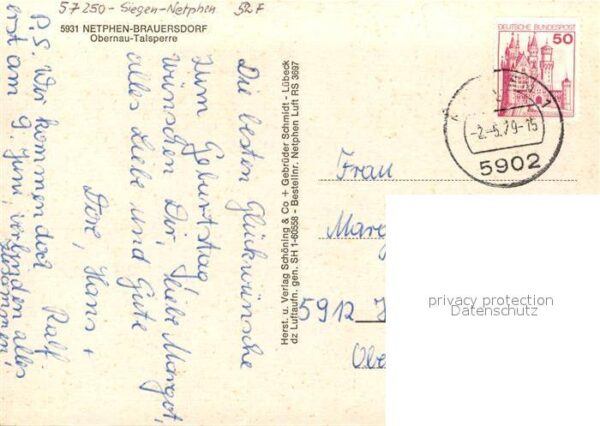 57250 - Siegen-Netphen 52 F
5931 NETPHEN-BRAUERSDORF
Obernau-Talsperre
Die besten Glückwünsche
zum Geburtstag
wünschen Dir, liebe Margot,
alles Liebe und Gute
Hans +
Ralf
P.S. Wir kommen doch
erst am 9. Juni, wir
alles
Herst. u. Verlag Schöning & Co + Gebrüder Schmidt - Lübeck
dz Luftaufn. gen. SH 1-60558 - Bestellnr. Netphen Luft RS 3697
DEUTSCHE BUNDESPOST
50
-2.-5.79-15
5902
Frau
Marg
5912
Obe
privacy protection
Datenschutz